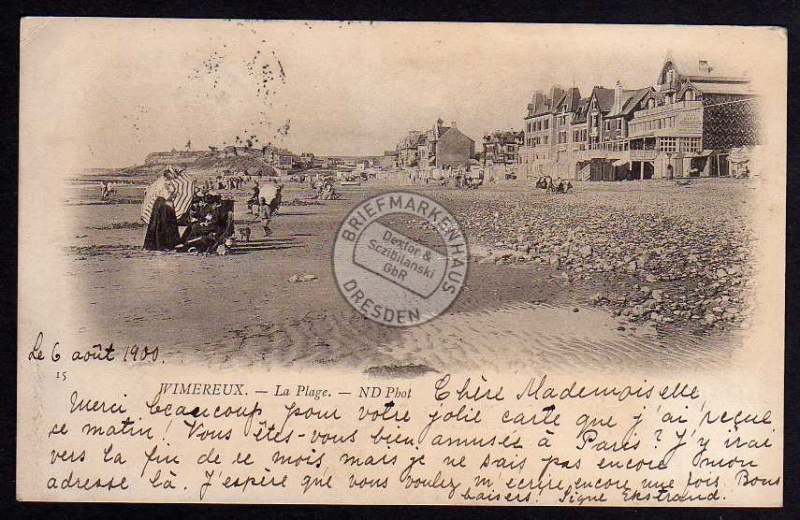 BRIEFMARKENHAUS
Dexter &
Sczibilanski
GbR
DRESDEN
Le 6 août 1900.
15
WIMEREUX. — La Plage. — ND Phot
Chère Mademoiselle,
Merci beaucoup pour votre jolie carte que j'ai reçue
se matin! Vous êtes-vous bien amusée à Paris? J'y irai
vers la fin de ce mois mais je ne sais pas encore mon
adresse là. J'espère que vous voulez m'écrire encore une fois. Bons
baisers. Signe Ekstrand.